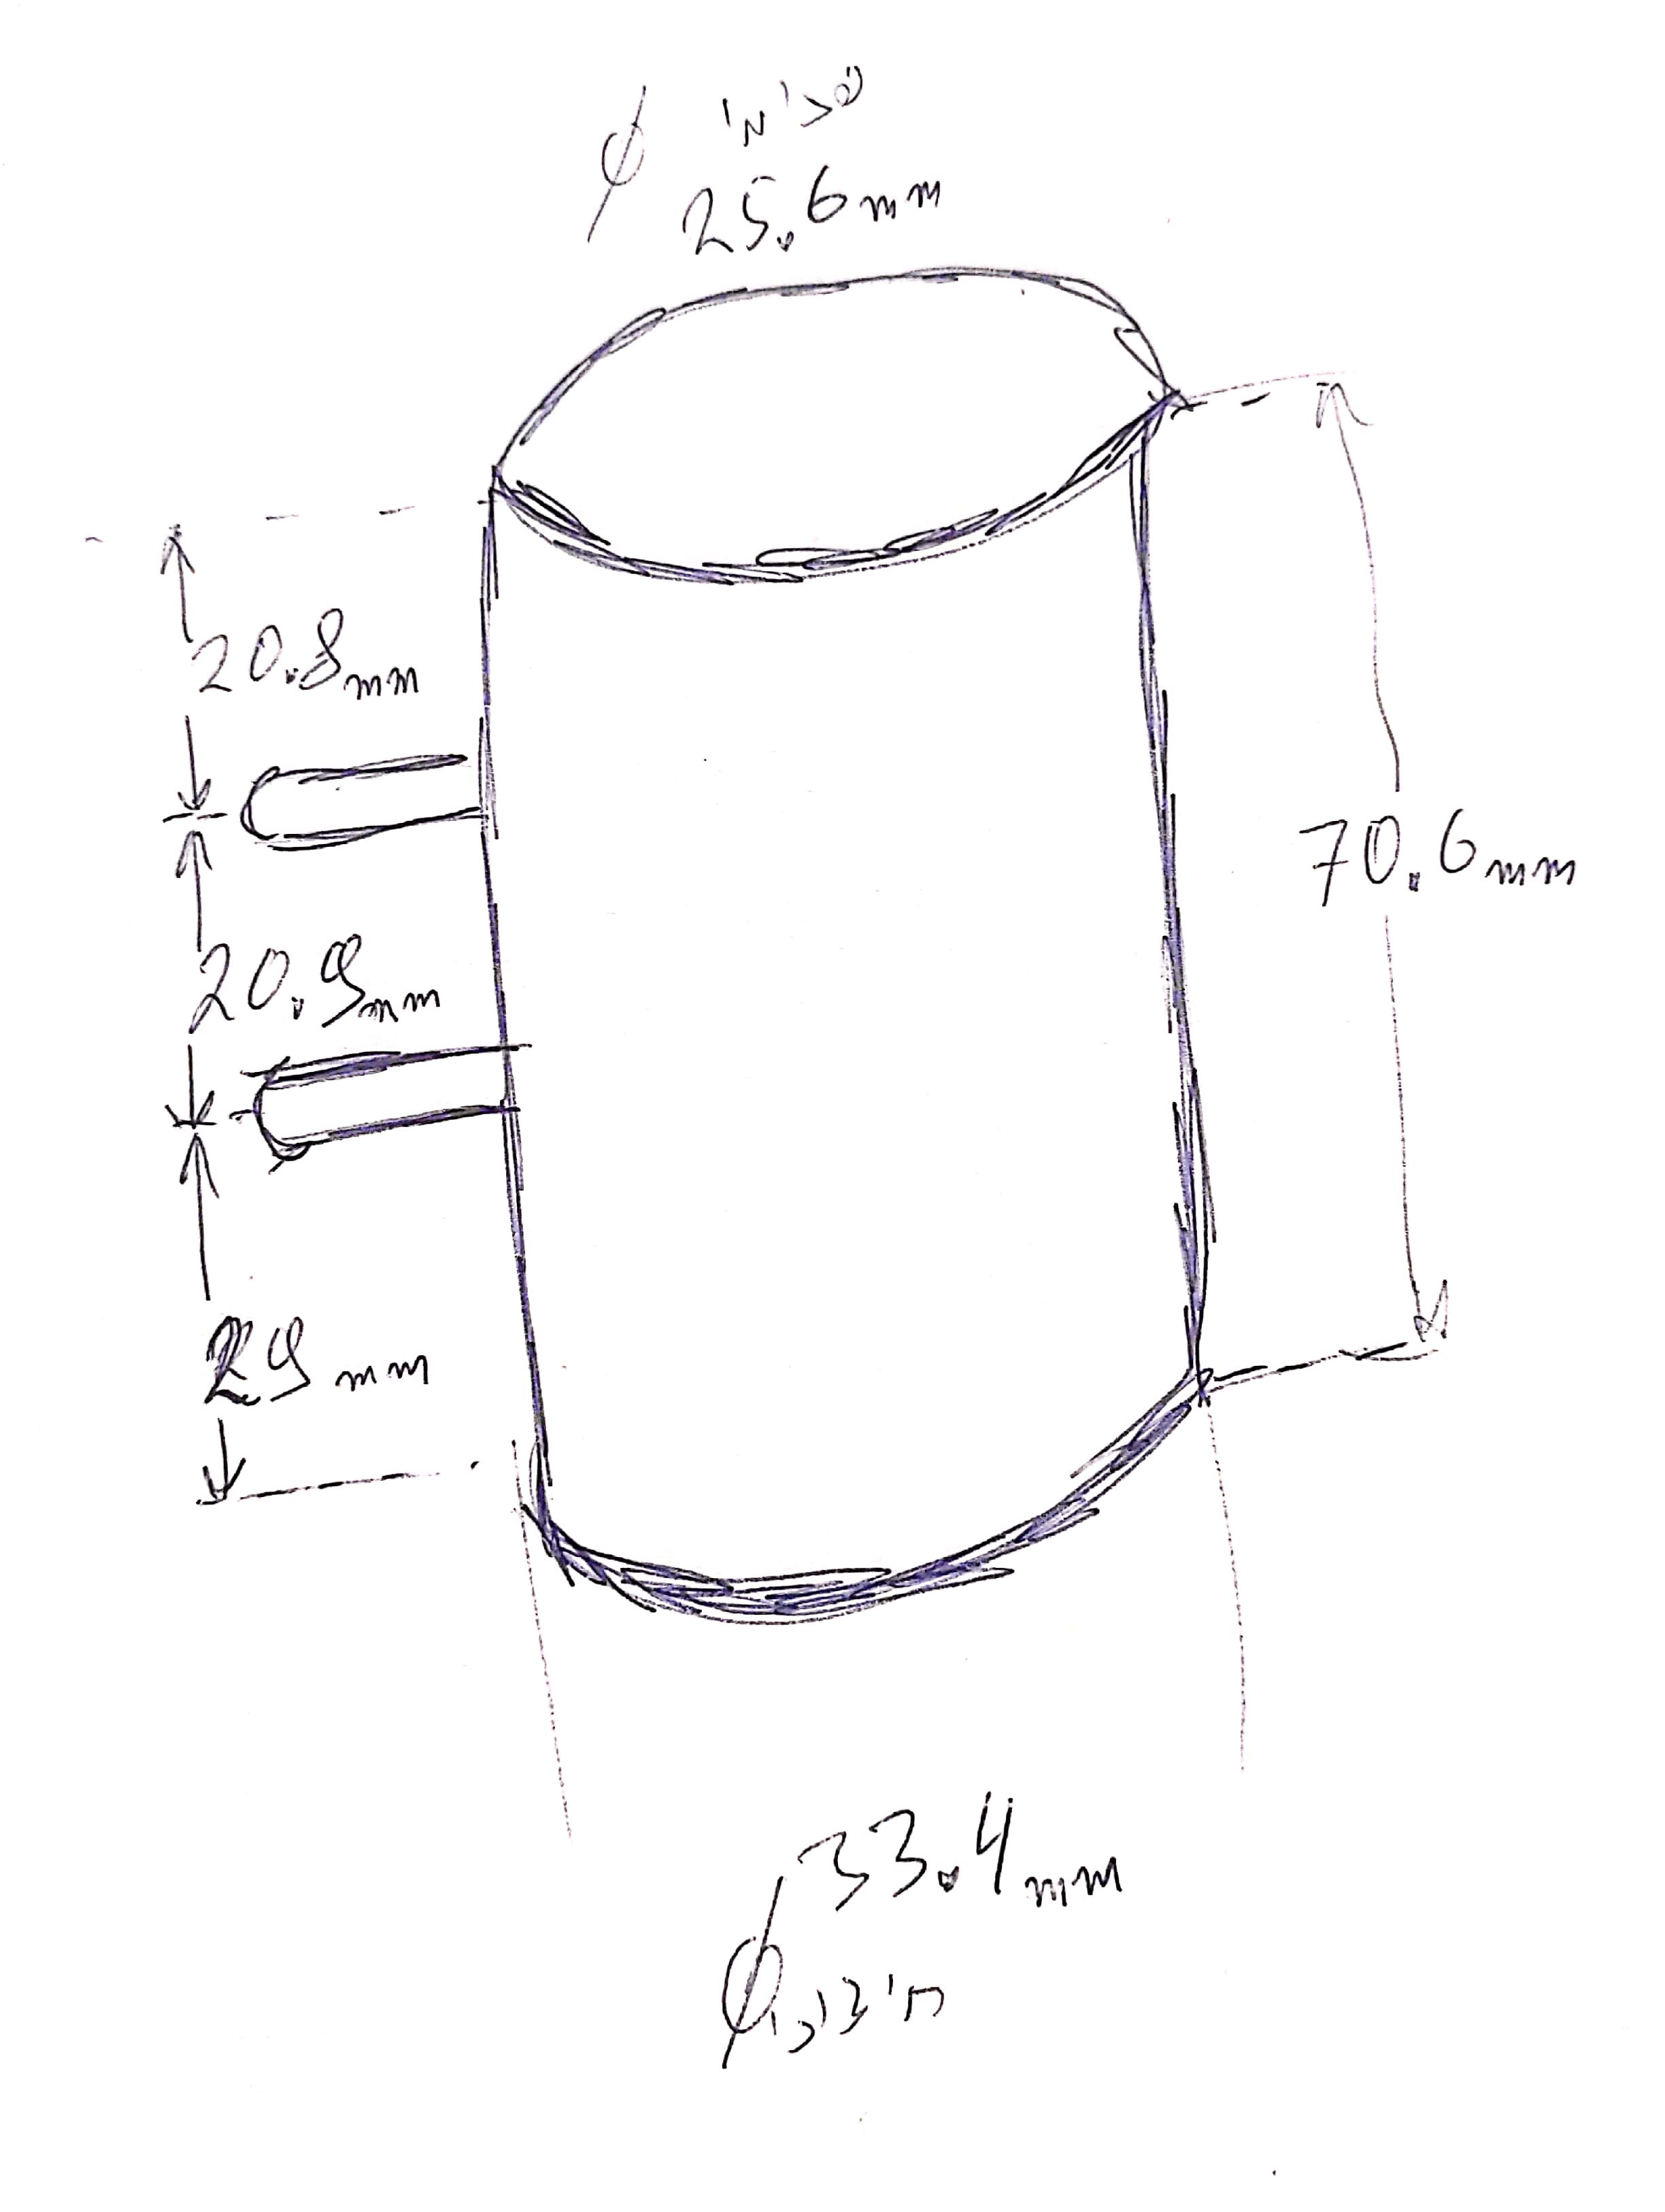 ⌀ פנימי
25.6mm
20.8mm
70.6mm
20.9mm
29mm
33.4mm
⌀ חיצוני